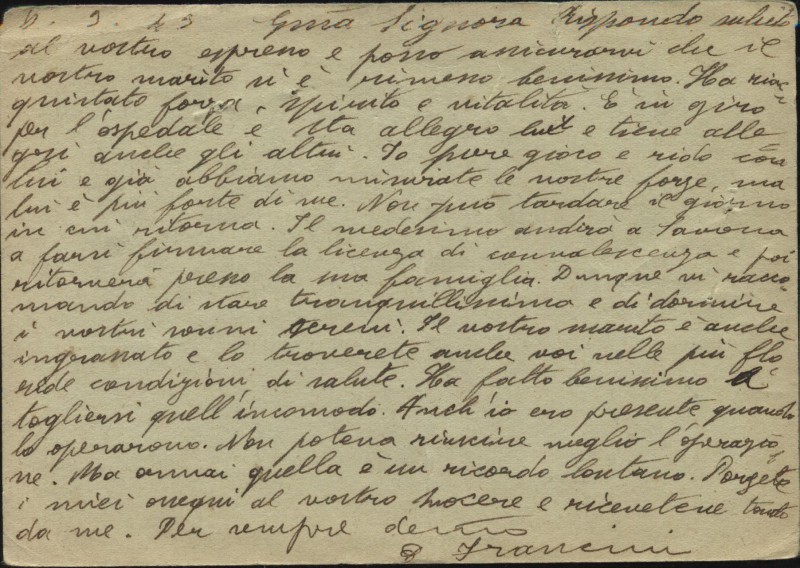 6. 9. 43 Gma Signora Rispondo subito
al vostro espresso e posso assicurarvi che il
vostro marito si è rimesso benissimo. Ha riac-
quistato forza, spirito e vitalità. È in giro
per l'ospedale e sta allegro lui e tiene alle
gri anche gli altri. Io pure gioco e rido con
lui e già abbiamo misurate le nostre forze, ma
lui è più forte di me. Non può tardare il giorno
in cui ritorna. Il medesimo andrà a Savona
a farsi firmare la licenza di convalescenza e poi
ritornerà presso la sua famiglia. Dunque vi racco-
mando di stare tranquillissima e di dormire
i vostri sonni sereni. Il vostro marito è anche
ingrassato e lo troverete anche voi nelle più flo
ride condizioni di salute. Ha fatto benissimo a
togliersi quell'incomodo. Anch'io ero presente quando
lo operarono. Non poteva riuscire meglio l'operazio-
ne. Ma ormai quella è un ricordo lontano. Porgete
i miei ossequi al vostro suocere e ricevetene tanti
da me. Per sempre
Francini